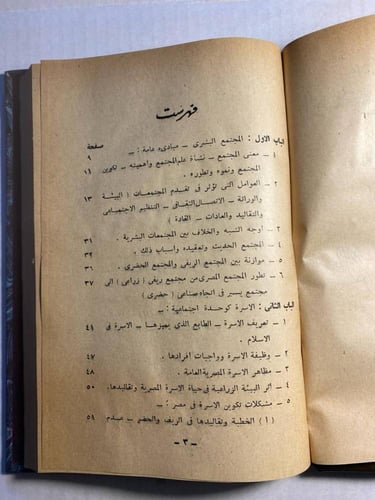 فهرست
صفحة
الباب الاول : المجتمع البشرى – مبادىء عامة : –
١ – معنى المجتمع – نشأة علم المجتمع وأهميته – تكوين ٩
المجتمع ونموه وتطوره . ١١
٢ – العوامل التى تؤثر فى تقدم المجتمعات ( البيئة
والوراثة – الاتصال الثقافى – التنظيم الاجتماعى ١٣
والتقاليد والعادات – القادة )
٣ – أوجه الشبه والخلاف بين المجتمعات البشرية . ٣١
٤ – المجتمع الحديث وتعقيده وأسباب ذلك . ٣٢
٥ – موازنة بين المجتمع الريفى والمجتمع الحضرى .
٦ – تطور المجتمع المصرى من مجتمع ريفى ( زراعى ) الى ٣٧
مجتمع يسير فى اتجاه صناعى ( حضرى )
الباب الثانى : الاسرة كوحدة اجتماعية : –
١ – تعريف الاسرة – الطابع الذى يميزها – الاسرة فى ٤١
الاسلام .
٢ – وظيفة الاسرة وواجبات أفرادها . ٤٧
٣ – مظاهر الاسرة المصرية العامة . ٤٨
٤ – أثر البيئة الزراعية فى حياة الاسرة المصرية وتقاليدها . ٥٠
٥ – مشكلات تكوين الاسرة فى مصر : –
( أ ) الخطبة وتقاليدها فى الريف والحضر – عدم ٥٩
– ٣ –